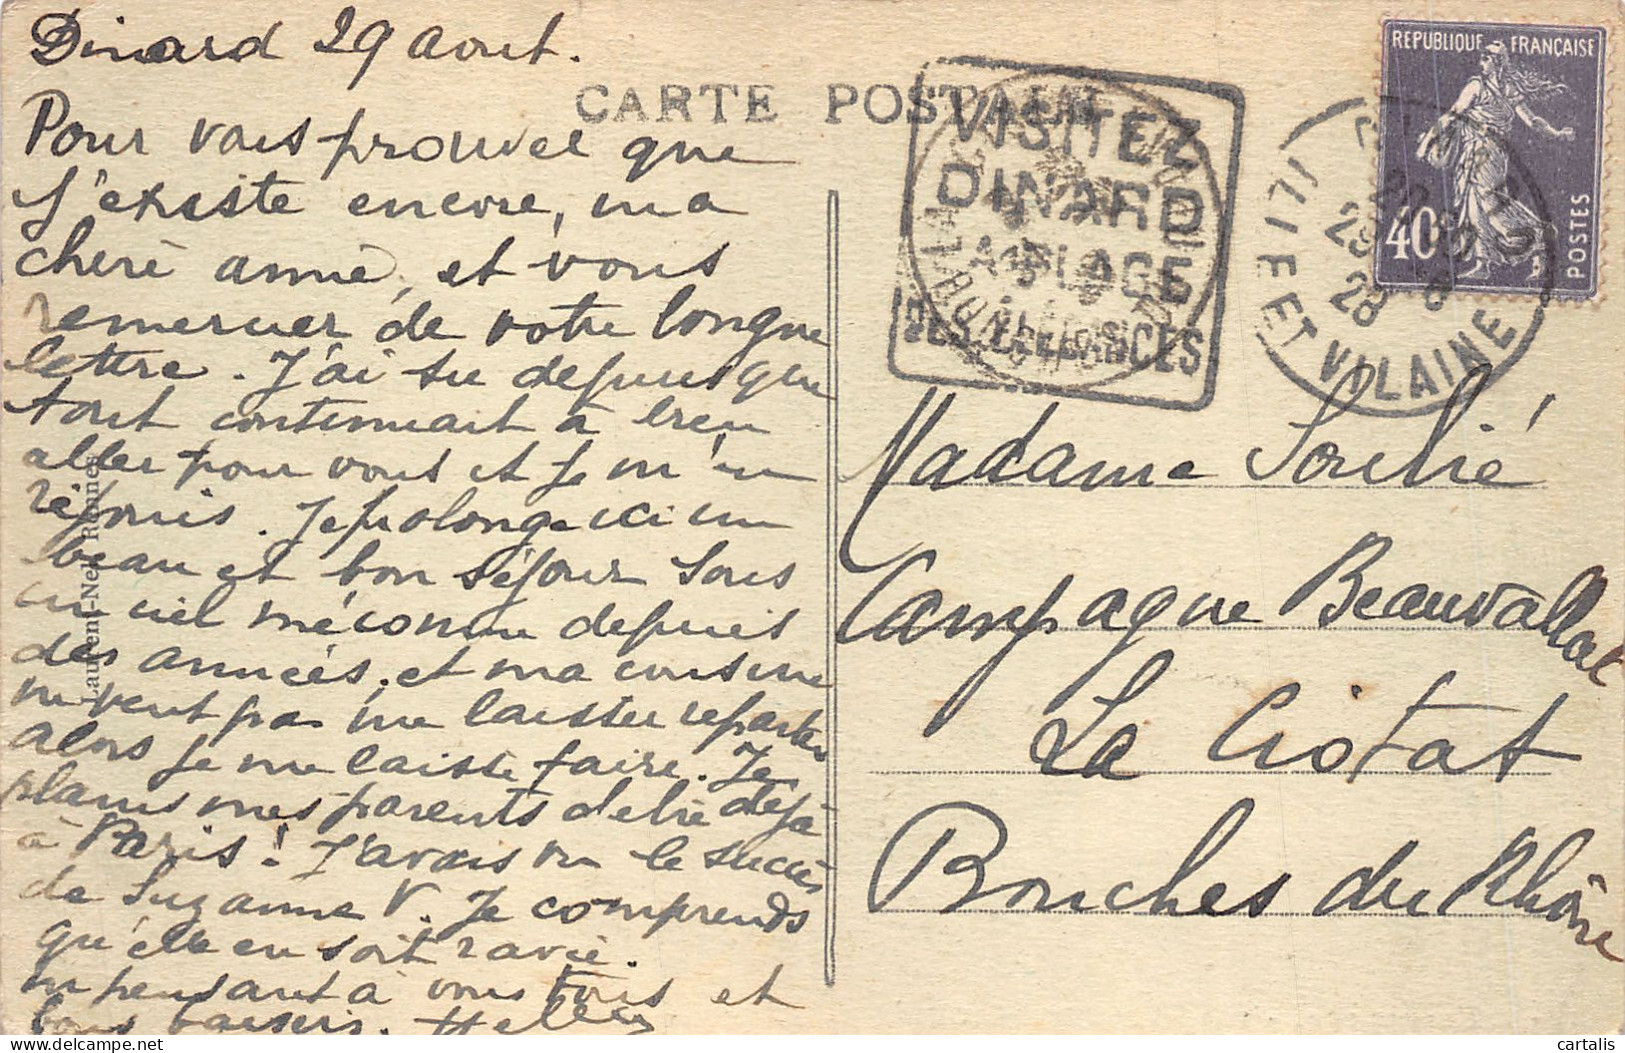 Dinard 29 aout.
CARTE POSTALE
Pour vous prouver que
j'existe encore, ma
chère amie, et vous
remercier de votre longue
lettre. J'ai su depuis que
tout continuait à bien
aller pour vous et je m'en
réjouis. Je prolonge ici un
beau et bon séjour sous
un ciel méconnu depuis
des années, et ma cousine
ne veut pas me laisser repartir
Alors je me laisse faire. Je
plains mes parents d'être déjà
à Paris! J'avais vu le succès
de Suzanne V. Je comprends
qu'elle en soit ravie.
en pensant à vous tous et
bons baisers.
Laurent-Nel, Rennes
VISITEZ
DINARD
LA PLAGE
DES ELEGANCES
ILLE ET VILAINE
REPUBLIQUE FRANÇAISE
40
POSTES
Madame Soulié
Campagne Beauvallat
La Ciotat
Bouches du Rhône
cartalis